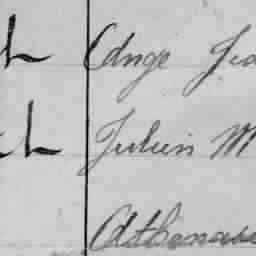 Ange Jea
Julien M
Athanase